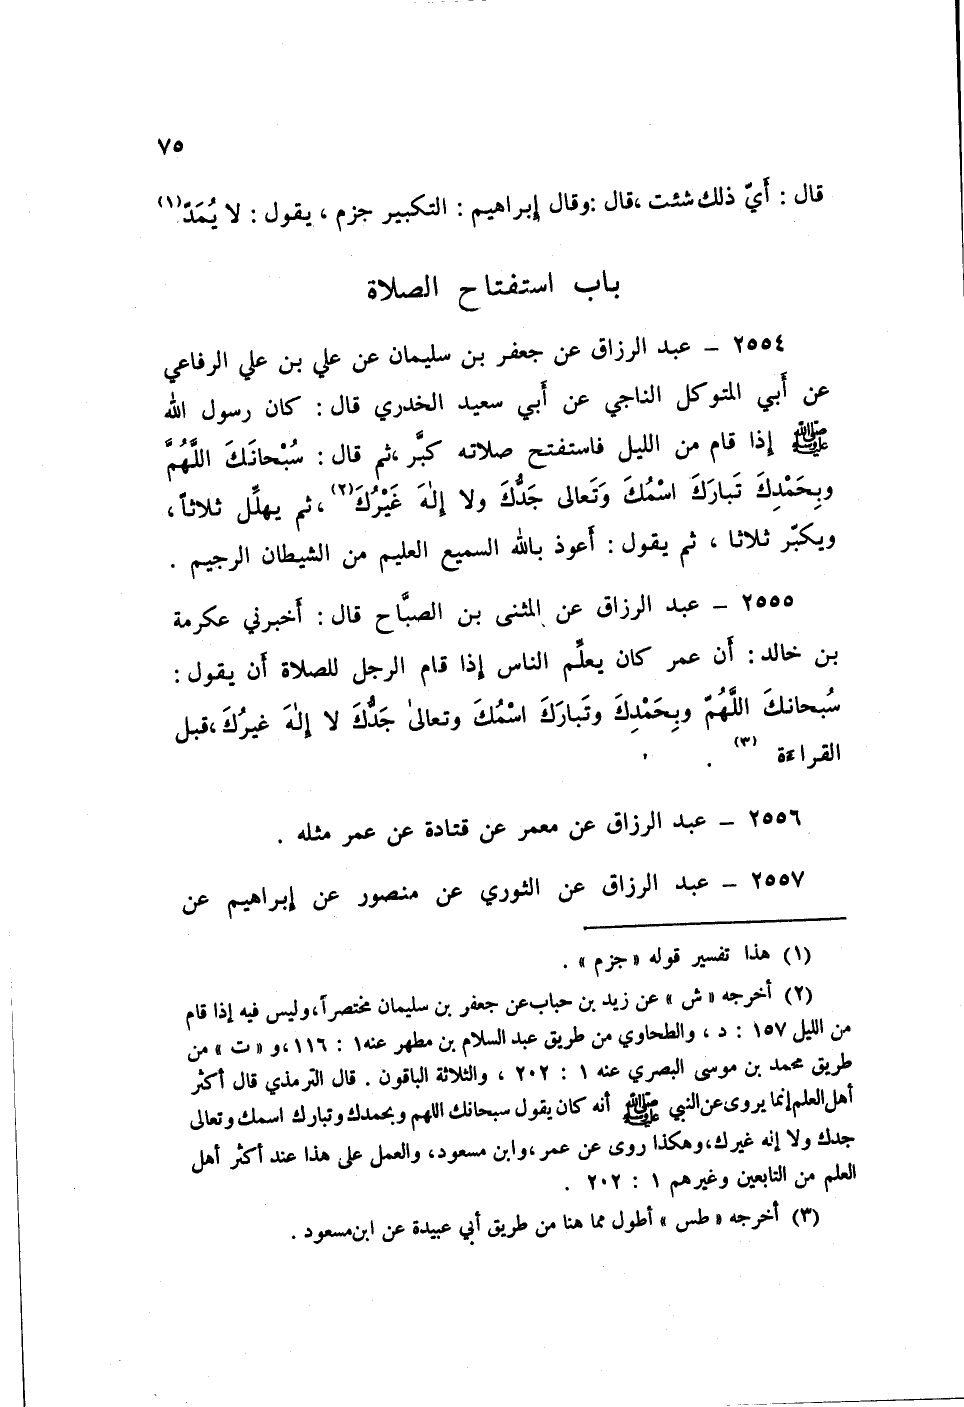 ٧٥
قال : أَيّ ذلك شئت ،قال :وقال إبراهيم : التكبير جزم ، يقول : لا يُمَدّ(١)
باب استفتاح الصلاة
٢٥٥٤ – عبد الرزاق عن جعفر بن سليمان عن علي بن علي الرفاعي
عن أَبي المتوكل الناجي عن أَبي سعيد الخدري قال : كان رسول الله
ﷺ إذا قام من الليل فاستفتح صلاته كبَّر ،ثم قال : سُبْحانَكَ اللَّهُمَّ
وبِحَمْدِكَ تَبارَكَ اسْمُكَ وَتَعالى جَدُّكَ ولا إِلٰهَ غَيْرُكَ(٢) ،ثم يهلِّل ثلاثاً،
ويكبّر ثلاثا ، ثم يقول : أَعوذ بالله السميع العليم من الشيطان الرجيم .
٢٥٥٥ – عبد الرزاق عن المثنى بن الصبَّاح قال : أَخبرني عكرمة
بن خالد : أَن عمر كان يعلِّم الناس إذا قام الرجل للصلاة أَن يقول :
سُبحانكَ اللَّهُمّ وبِحَمْدِكَ وتَبارَكَ اسْمُكَ وتعالىٰ جَدُّكَ لا إِلٰهَ غيرُكَ،قبل
القراءة (٣) .
٢٥٥٦ – عبد الرزاق عن معمر عن قتادة عن عمر مثله .
٢٥٥٧ – عبد الرزاق عن الثوري عن منصور عن إبراهيم عن
(١) هذا تفسير قوله « جزم » .
(٢) أخرجه « ش » عن زيد بن حباب عن جعفر بن سليمان مختصراً،وليس فيه إذا قام
من الليل ١٥٧ : د ، والطحاوي من طريق عبد السلام بن مطهر عنه١ : ١١٦،و « ت » من
طريق محمد بن موسى البصري عنه ١ : ٢٠٢ ، والثلاثة الباقون . قال الترمذي قال أكثر
أهل العلم إنما يروى عن النبي ﷺ أنه كان يقول سبحانك اللهم وبحمدك وتبارك اسمك وتعالى
جدك ولا إنه غيرك،وهكذا روى عن عمر ،وابن مسعود، والعمل على هذا عند أكثر أهل
العلم من التابعين وغيرهم ١ : ٢٠٢ .
(٣) أخرجه « طس » أطول مما هنا من طريق أبي عبيدة عن ابن مسعود .